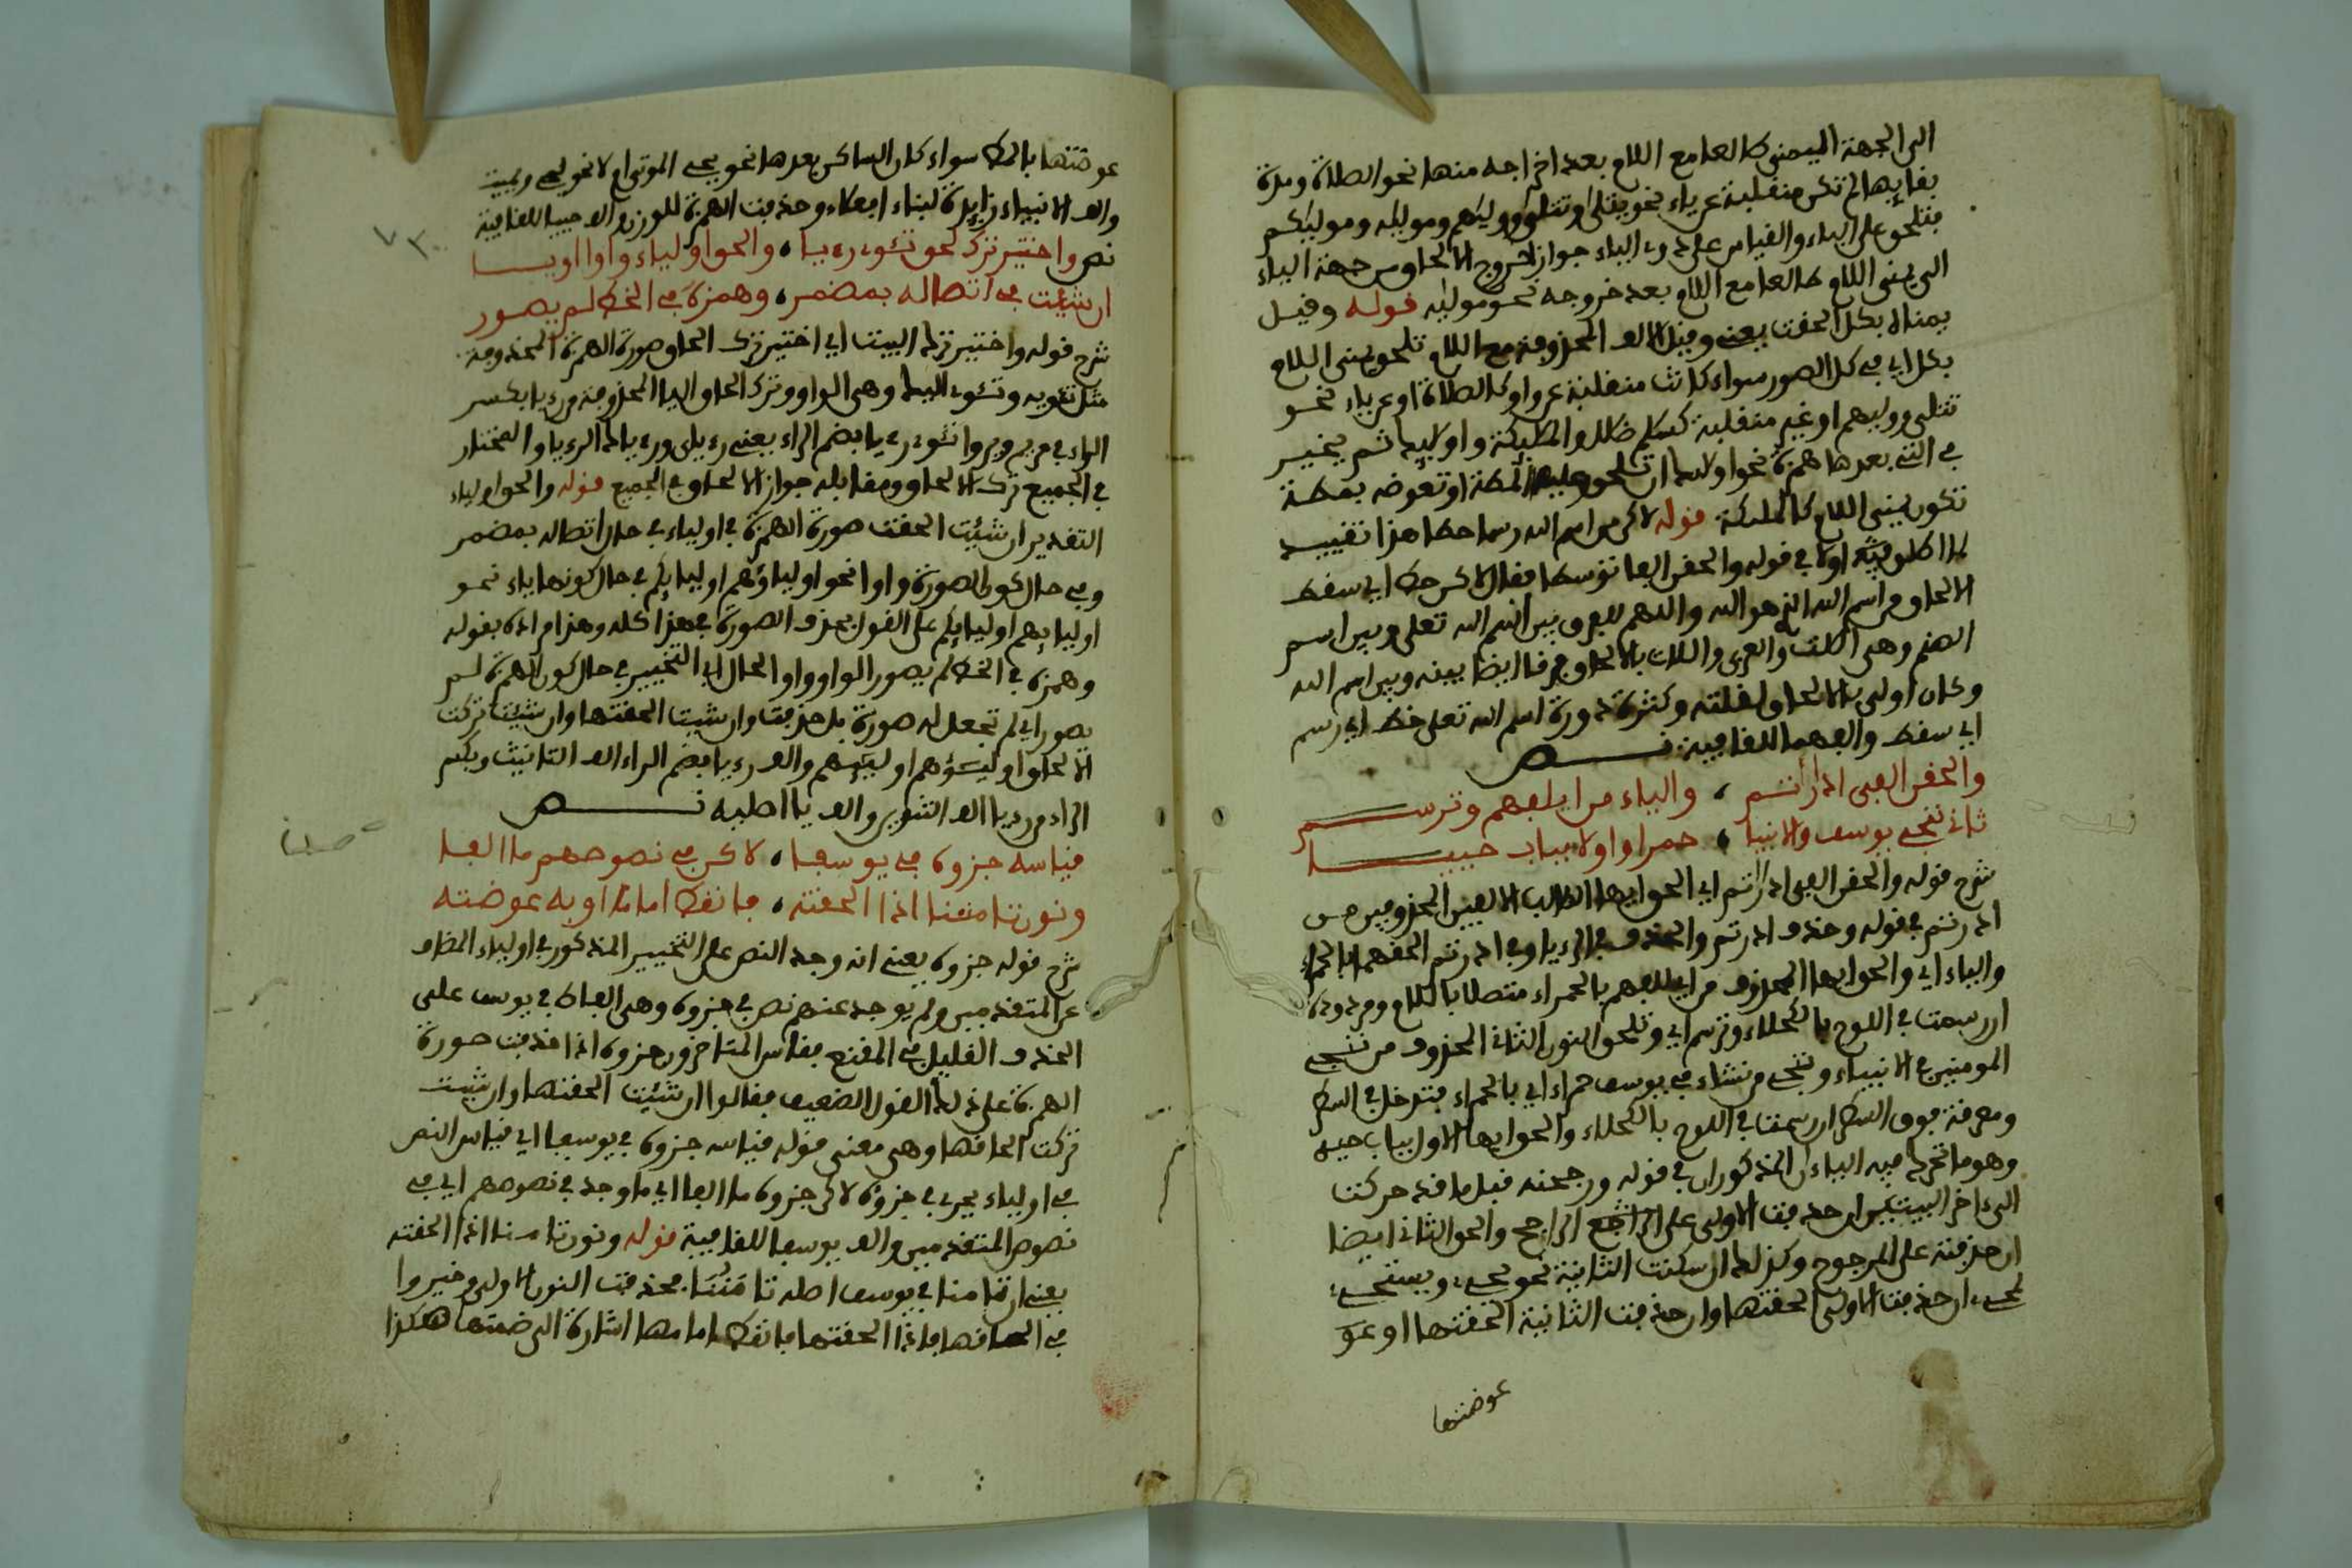 الى الجهة اليمنى كالعا مع اللام بعد اخراجه منها نحو الصلاة ومدة
بقايها لم تكن منقلبة عن ياء نحو يتلى او تتلو ووليهم وموليه وموليكم
فتلحق على الياء والقياس على ذوات الياء جواز خروج الالحاق من جهة الياء
الى يمنى اللام كالعا مع اللام بعد خروجه نحو موليه قوله وقيل
بمنها لا بكل الحقت يعني وقيل الالف المحذوفة مع اللام تلحق يمنى اللام
بكل اي في كل الصور سواء كانت منقلبة عن واو كالصلاة او عن ياء نحو
تتلى ووليهم او غير منقلبة كسلم ظلل والمليكة واوليك ثم يخير
في التي بعدها همزة نحو اولايك ان تلحق عليه المطة او تعوضه بمطة
تكون يمنى اللام كالمليكة قوله لاكن من اسم الله رسما حط هذا تقييد
لما اطلق فيه اولا في قوله والحقن الفا توسطا فقال لاكن حط اي سقط
الالحاق من اسم الله الذي هو الله واللهم للفرق بين اسم الله تعلى وبين اسم
الصنم وهي اللت والعزى واللات بالالحاق فرقا ايضا بينه وبين اسم الله
وكان اولى بالالحاق لقلته وكثرة دورة اسم الله تعلى حط اي رسم
اي سقط والفهما للقافية نص
والحقن الفي ادارأتم ، والياء من ايلفهم وترسم
ثاني ننجي يوسف والانبيا ، حمرا واولا بباب حييا
شرح قوله والحقن الفي ادارأتم اي الحق ايها الطالب الالفين المحذوفين من
ادرتم في قوله وحذف ادرتم والحذف في الرءيا وفي ادرتم الحقهما بالحمراء
والياء اي والحق ايها المحذوف من ايلفهم بالحمراء متصلا باللام ومردودة
ان رسمت في اللوح بالكحلاء وترسم اي وتلحق النون الثاني المحذوف من ننجي
المومنين في الانبياء وننجي من نشاء في يوسف حمراء اي بالحمراء فتدخل في السطر
ومعرفة فوق السطر ان رسمت في اللوح بالكحلاء والحق ايها الاول بباب حييه
وهو ما تحرك فيه الياءان المذكوران في قوله ورجحنه قبل ما قد حركت
الى ءاخر البيتين ان حذفت الاولى على الراجح الراجح والحق الثاني ايضا
ان حذفته على المرجوح وكذلك ان سكنت الثانية نحو يحيى ويستحيى
نحيى ان حذفت الاولى الحقتها وان حذفت الثانية الحقتها او عو
عوضتها
عوضتها بالمط سواء كان الساكن بعدها نحو يحي الموتى ام لا نحو يحي ويميت
والف الانبياء زايدة لبناء افعلاء وحذفت الهمزة للوزن والف حييا للقافية
نص واختير ترك نحو تئوي رءيا ، والحق اولياء واوا او يا
ان شئت في اتصاله بمضمر ، وهمزه في الخط لم يصور
شرح قوله واختير ترك البيت اي اختير ترك الحاق صورة الهمزة المحذوفة
مثل تئويه وتئوي اليك وهي الواو وترك الحاق اليا المحذوفة من رءيا بكسر
الراء في مريم ويروا تئوي رءيا بضم الراء يعني رءياي ورءياك الرءيا والمختار
في الجميع ترك الالحاق ومقابله جواز الالحاق في الجميع قوله والحق اولياء
التقدير ان شئت الحقت صورة الهمزة في اولياء في حال اتصاله بمضمر
وفي حال كون الصورة واوا نحو اولياؤهم اوليايكم في حال كونها ياء نحو
اوليايهم اوليايكم على القول بحذف الصورة في هذا كله وهذا مراده بقوله
وهمزه في الخط لم يصور الواو واو الحال اي التخيير في حال كون الهمزة لم
يصور اي لم تجعل له صورة بل حذفت وان شيت الحقتها وان شيت تركت
الالحاق اوليـؤهم اوليـيهم والف رءيا بضم الراء الف التانيث وبكسر
الراء من رءيا الف التنوين والف يا اطلبه نص
قياسه جزوه في يوسفا ، لاكن في نصوصهم ما الفا
ونون تامننا اذا الحقته ، فانقط امامه او به عوضته
شرح قوله جزوه يعني انه وجد النص على التخيير المذكور في اولياء المضاف
عن المتقدمين ولم يوجد عنهم نص في جزوه وهي الفاظ في يوسف على
الحذف القليل في المقنع فقاس المتاخرون جزوه اذا حذفت صورة
الهمزة على ذلك القول الضعيف فقالوا ان شئت الحقتها وان شيت
تركت الحاقها وهي معنى قوله قياسه جزوه في يوسفا اي قياس النص
في اولياء يجري في جزوه لاكن جزوه ما الفا اي ما وجد في نصوصهم اي في
نصوص المتقدمين والف يوسفا للقافية قوله ونون تامننا اذا الحقته
يعني ان تامنا في يوسف اصله تامننا فحذفت النون الاولى وخيروا
في الحاقها فاذا الحقتها فانقط امامها اشارة الى ضمتها هكذا